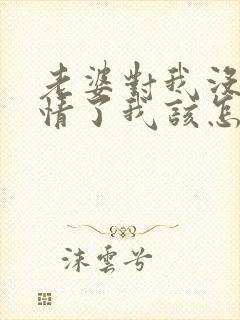 老婆對我沒
情了我該怎
沫雲兮